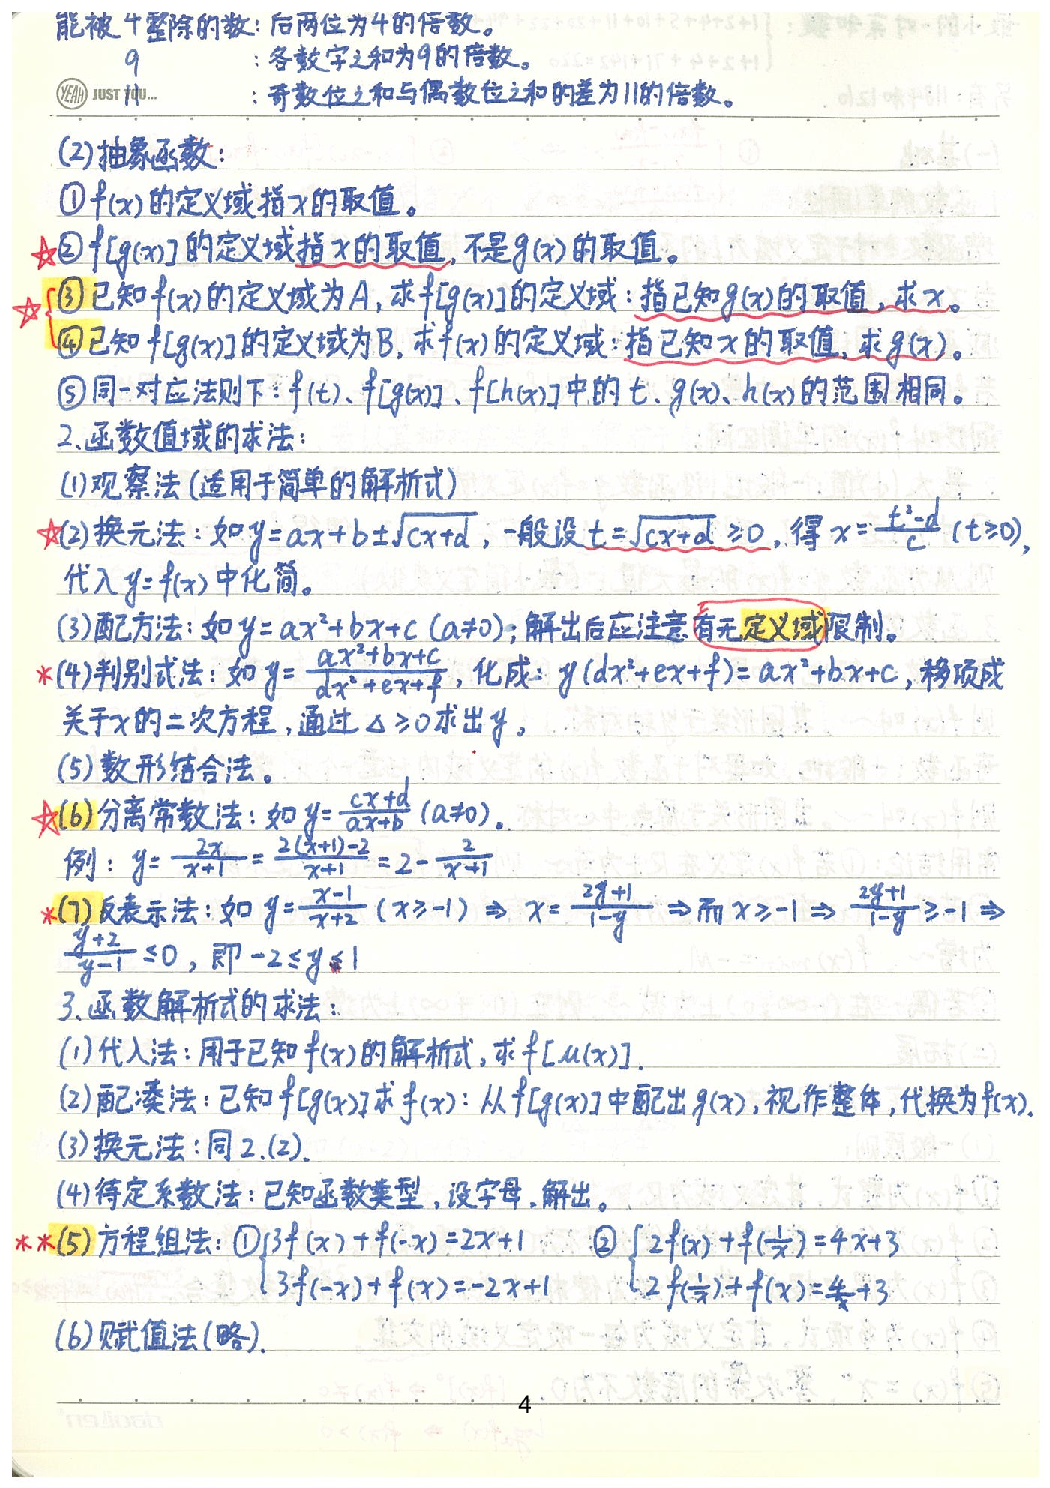 能被4整除的数：后两位为4的倍数。
9：各数字之和为9的倍数。
YEAH JUST YOU... 11：奇数位之和与偶数位之和的差为11的倍数。
(2)抽象函数：
①f(x)的定义域指x的取值。
☆②f[g(x)]的定义域指x的取值，不是g(x)的取值。
☆③已知f(x)的定义域为A，求f[g(x)]的定义域：指已知g(x)的取值，求x。
④已知f[g(x)]的定义域为B，求f(x)的定义域：指已知x的取值，求g(x)。
⑤同一对应法则下：f(t)、f[g(x)]、f[h(x)]中的t、g(x)、h(x)的范围相同。
2.函数值域的求法：
(1)观察法(适用于简单的解析式)
☆(2)换元法：如y=ax+b±√(cx+d)，一般设t=√(cx+d)≥0，得x=(t²-d)/c (t≥0)，
代入y=f(x)中化简。
(3)配方法：如y=ax²+bx+c (a≠0)；解出后应注意有无定义域限制。
*(4)判别式法：如y=(ax²+bx+c)/(dx²+ex+f)，化成：y(dx²+ex+f)=ax²+bx+c，移项成
关于x的二次方程，通过△≥0求出y。
(5)数形结合法。
☆(6)分离常数法：如y=(cx+d)/(ax+b) (a≠0)。
例：y=2x/(x+1)=(2(x+1)-2)/(x+1)=2-2/(x+1)
*(7)反表示法：如y=(x-1)/(x+2) (x≥-1) ⇒ x=(2y+1)/(1-y) ⇒而x≥-1⇒ (2y+1)/(1-y)≥-1 ⇒
(y+2)/(y-1)≤0，即-2≤y<1
3.函数解析式的求法：
(1)代入法：用于已知f(x)的解析式，求f[μ(x)].
(2)配凑法：已知f[g(x)]求f(x)：从f[g(x)]中配出g(x)，视作整体，代换为f(x).
(3)换元法：同2.(2).
(4)待定系数法：已知函数类型，设字母，解出。
**(5)方程组法：①{3f(x)+f(-x)=2x+1 ②{2f(x)+f(1/x)=4x+3
3f(-x)+f(x)=-2x+1 2f(1/x)+f(x)=4/x+3
(6)赋值法(略).
4